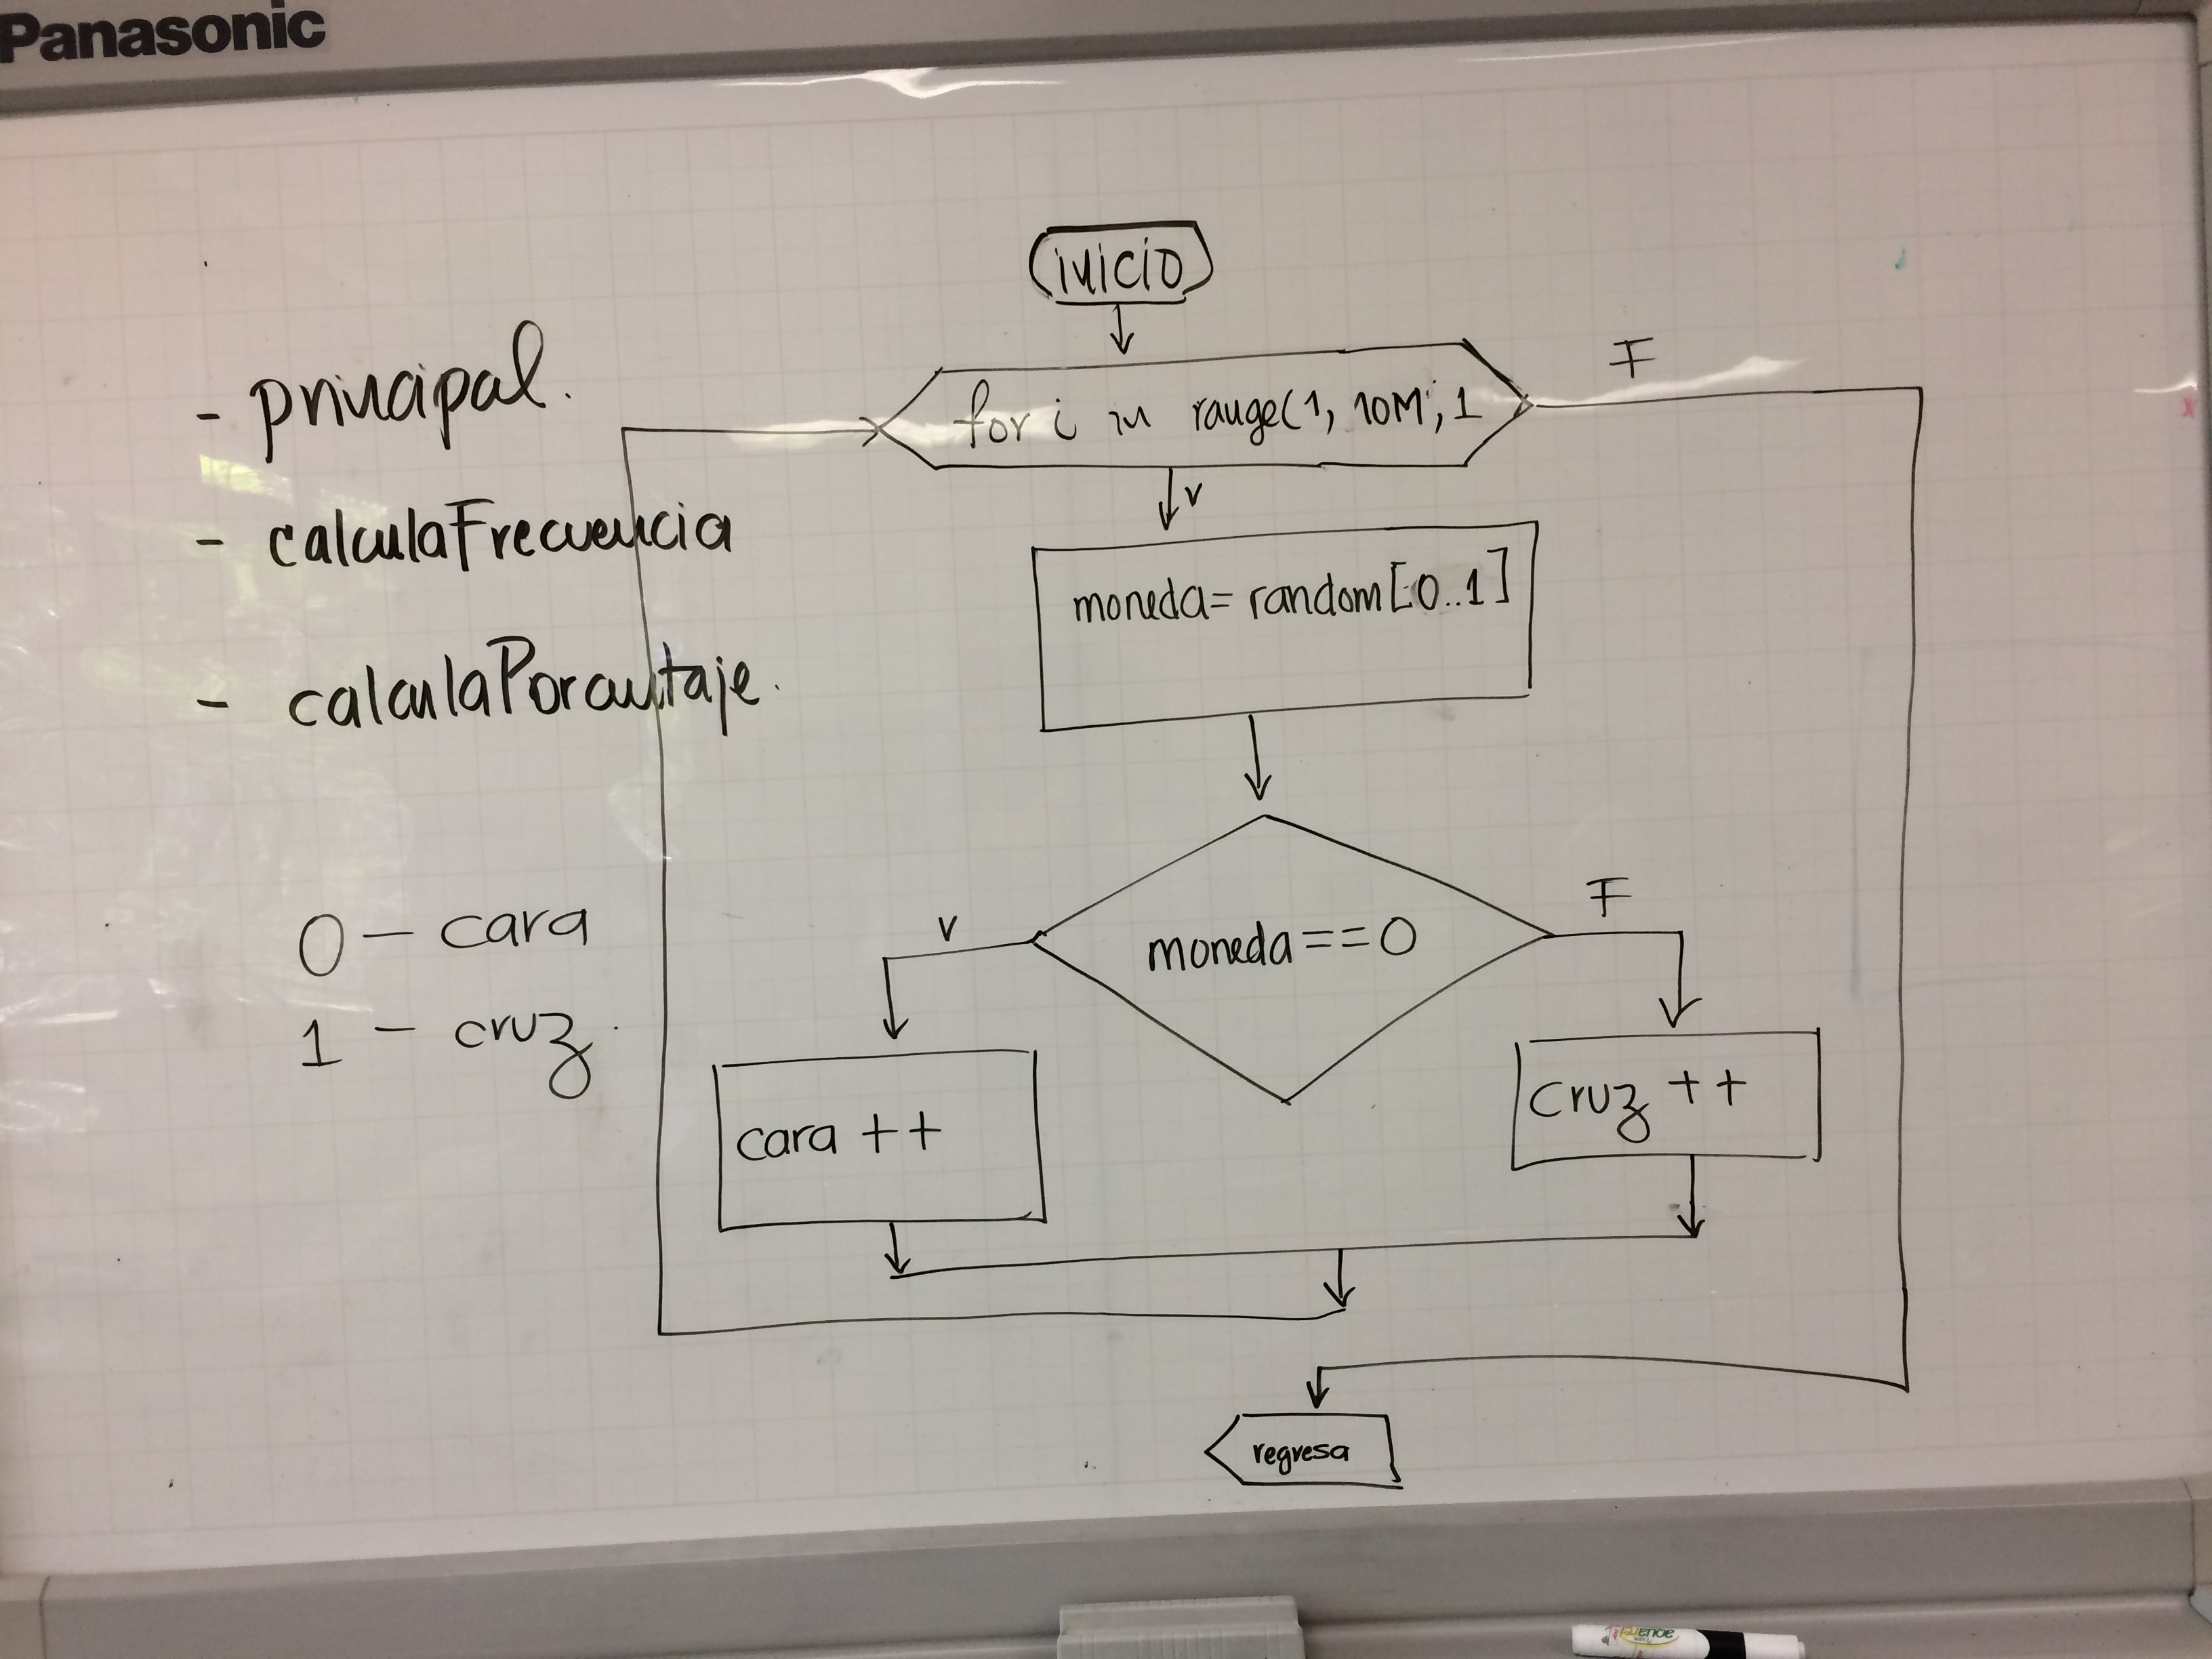 Panasonic
- principal.
- calculaFrecuencia
- calculaPorcentaje.
0 - cara
1 - cruz
inicio
for i in range(1, 10M, 1
F
V
moneda= random[0..1]
moneda==0
V
F
cara ++
cruz ++
regresa